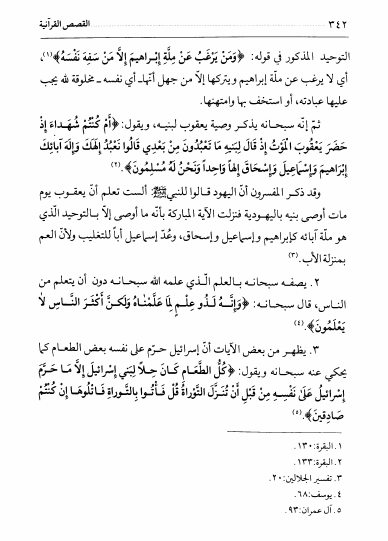 ٣٤٢ القصص القرآنية
التوحيد المذكور في قوله: ﴿وَمَنْ يَرْغَبُ عَنْ مِلَّةِ إِبْراهيمَ إِلاَّ مَنْ سَفِهَ نَفْسَهُ﴾(١)،
أي لا يرغب عن ملّة إبراهيم ويتركها إلاّ من جهل أنّها ـ أي نفسه ـ مخلوقة لله يجب
عليها عبادته، أو استخف بها وامتهنها.
ثمّ إنّه سبحانه يذكر وصية يعقوب لبنيه، ويقول: ﴿أَمْ كُنْتُمْ شُهَداءَ إِذْ
حَضَرَ يَعْقُوبَ الْمَوْتُ إِذْ قَالَ لِبَنِيهِ مَا تَعْبُدُونَ مِنْ بَعْدِي قَالُوا نَعْبُدُ إِلهَكَ وَإِلهَ آبائِكَ
إِبْرَاهِيمَ وَإِسْمَاعِيلَ وَإِسْحَاقَ إِلهاً وَاحِداً وَنَحْنُ لَهُ مُسْلِمُونَ﴾.(٢)
وقد ذكر المفسرون أنّ اليهود قالوا للنبي ﷺ: ألست تعلم أنّ يعقوب يوم
مات أوصى بنيه باليهودية فنزلت الآية المباركة بأنّه ما أوصى إلاّ بالتوحيد الّذي
هو ملّة آبائه كإبراهيم وإسماعيل وإسحاق، وعُدّ إسماعيل أباً للتغليب ولأنّ العم
بمنزلة الأب.(٣)
٢. يصفه سبحانه بالعلم الّذي علمه الله سبحانه دون أن يتعلم من
الناس، قال سبحانه: ﴿وَإِنَّهُ لَذُو عِلْمٍ لِمَا عَلَّمْنَاهُ وَلكِنَّ أَكْثَرَ النَّاسِ لاَ
يَعْلَمُونَ﴾.(٤)
٣. يظهر من بعض الآيات أنّ إسرائيل حرّم على نفسه بعض الطعام كما
يحكي عنه سبحانه ويقول: ﴿كُلُّ الطَّعَامِ كَانَ حِلاًّ لِبَنِي إِسْرَائِيلَ إِلاَّ مَا حَرَّمَ
إِسْرَائِيلُ عَلَىٰ نَفْسِهِ مِنْ قَبْلِ أَنْ تُنَزَّلَ التَّوْرَاةُ قُلْ فَأْتُوا بِالتَّوْرَاةِ فَاتْلُوهَا إِنْ كُنْتُمْ
صَادِقِينَ﴾.(٥)
١. البقرة: ١٣٠.
٢. البقرة: ١٣٣.
٣. تفسير الجلالين: ٢٠.
٤. يوسف: ٦٨.
٥. آل عمران: ٩٣.